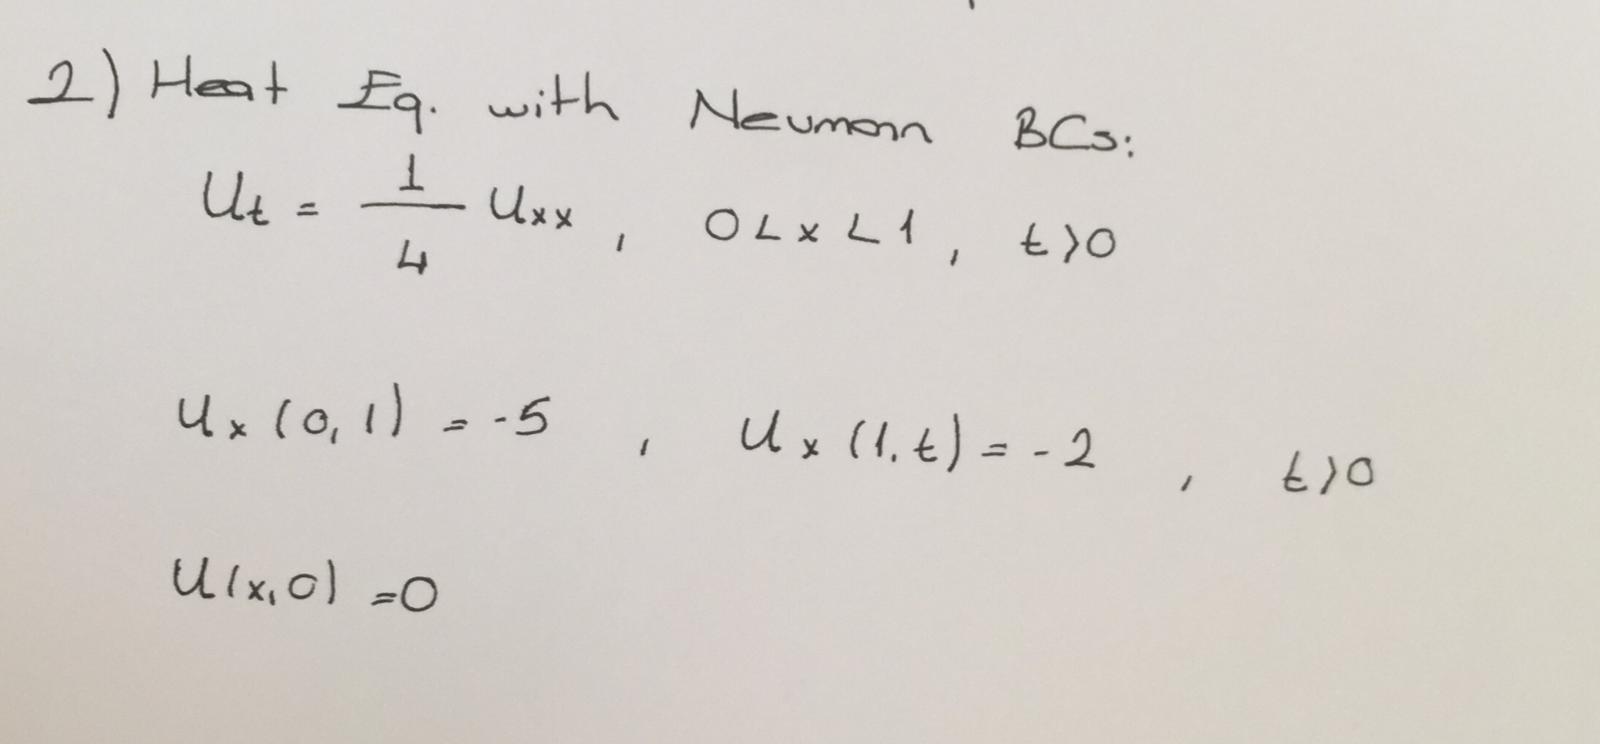 2) Heat Eq. with Neumann BCs:
Ut = 1/4 Uxx , 0 < x < 1 , t > 0
Ux (0, 1) = -5 , Ux (1, t) = -2 , t > 0
U(x, 0) = 0